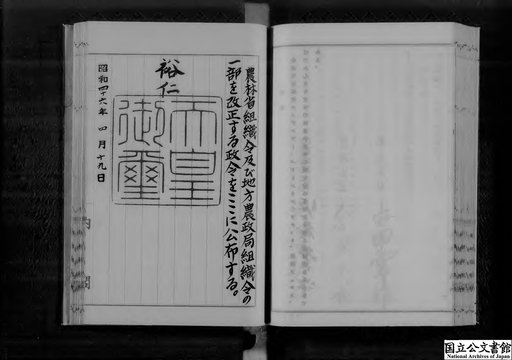 農林省組織令及び地方農政局組織令の
一部を改正する政令をここに公布する。
裕仁
天皇
御璽
昭和四十六年 四月 十九日
内閣
国立公文書館
National Archives of Japan